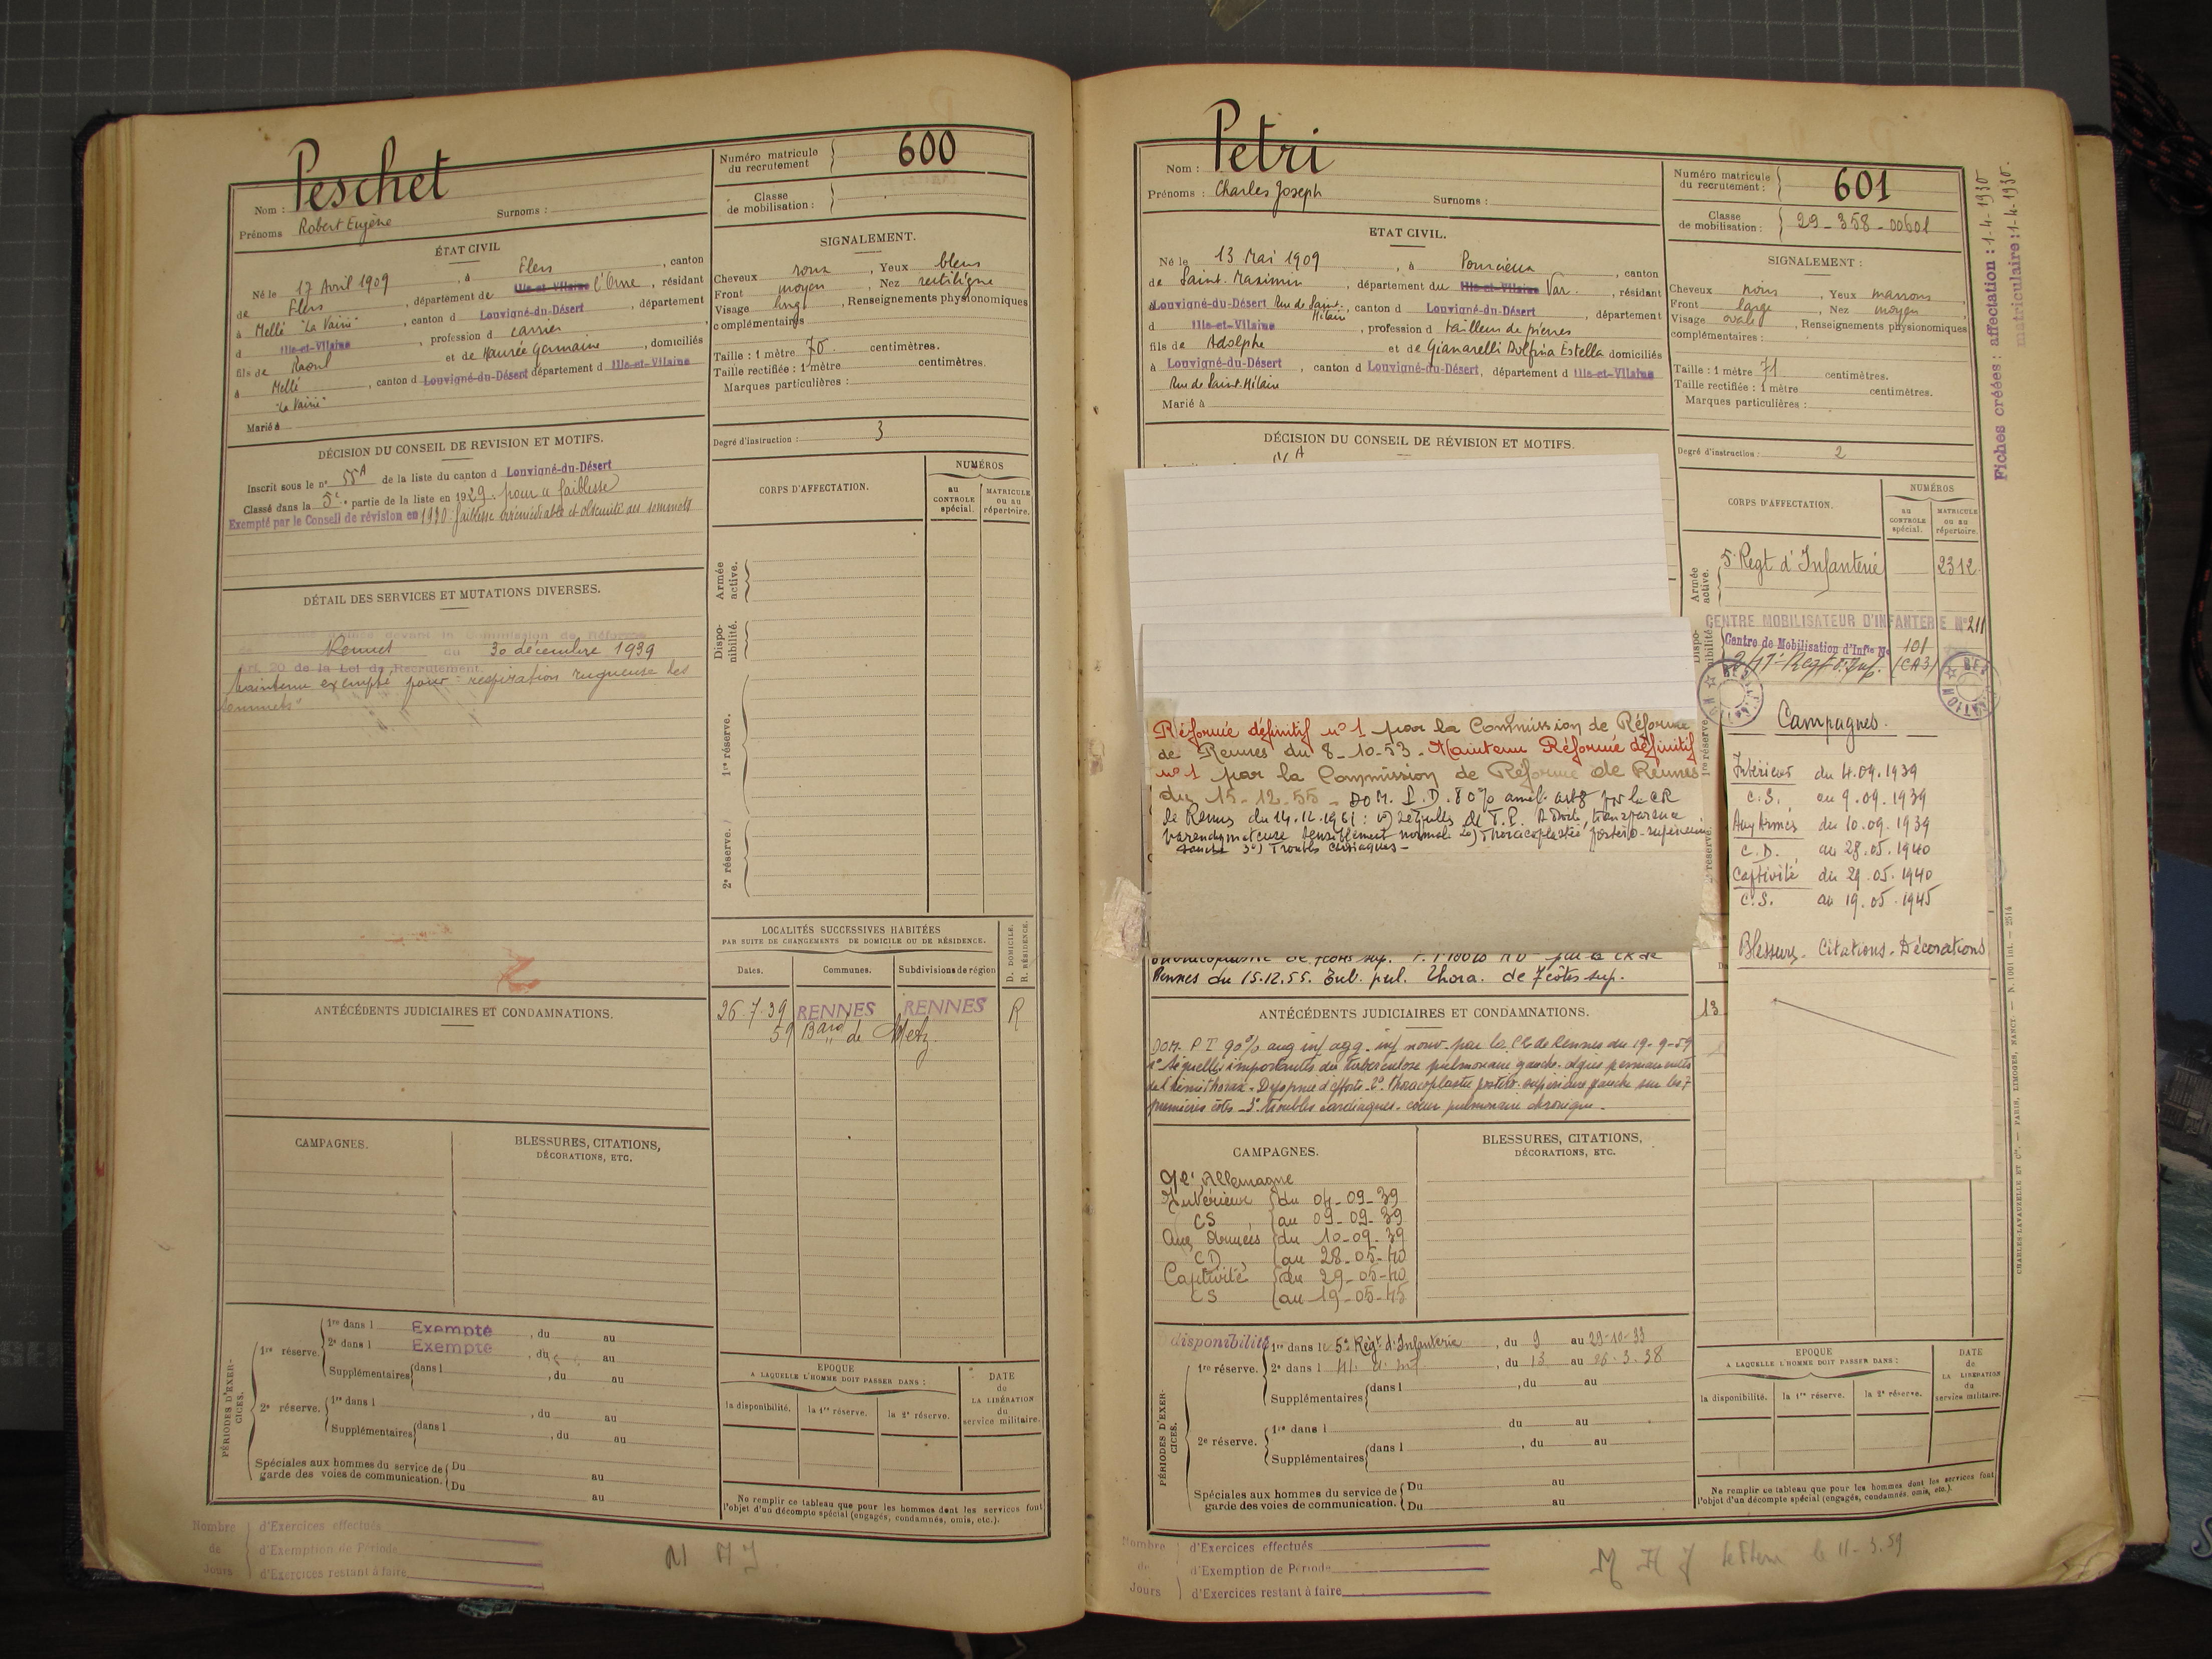 Peschet
Nom :
Prénoms Robert Eugène Surnoms :
Numéro matricule du recrutement 600
Classe de mobilisation :
ÉTAT CIVIL
Né le 17 Avril 1909, à Flers, canton
de Flers, département de Ille-et-Vilaine l'Orne, résidant
à Mellé "La Vairie", canton d Louvigné-du-Désert, département
d Ille-et-Vilaine, profession d carrier
fils de Raoul et de Maurée Germaine, domiciliés
à Mellé, canton d Louvigné-du-Désert département d Ille-et-Vilaine
"La Vairie"
Marié à
SIGNALEMENT.
Cheveux roux, Yeux bleus
Front moyen, Nez rectiligne
Visage long, Renseignements physionomiques
complémentaires
Taille : 1 mètre 70 centimètres.
Taille rectifiée : 1 mètre centimètres.
Marques particulières :
Degré d'instruction : 3
DÉCISION DU CONSEIL DE REVISION ET MOTIFS.
Inscrit sous le n° 55A de la liste du canton d Louvigné-du-Désert
Classé dans la 5e partie de la liste en 1929. pour faiblesse
Exempté par le Conseil de révision en 1930. faiblesse irrémédiable et obscurité des sommets
DÉTAIL DES SERVICES ET MUTATIONS DIVERSES.
devant la Commission de Réforme
de Rennes du 30 décembre 1939
Art. 20 de la Loi de Recrutement.
Maintenu exempté pour "respiration rugueuse des
sommets"
CORPS D'AFFECTATION.
NUMÉROS
au CONTROLE spécial.
MATRICULE ou au répertoire.
Armée active.
Disponibilité.
1re réserve.
2e réserve.
LOCALITÉS SUCCESSIVES HABITÉES
PAR SUITE DE CHANGEMENTS DE DOMICILE OU DE RÉSIDENCE.
Dates. Communes. Subdivisions de région
D. DOMICILE. R. RÉSIDENCE.
26.7.39 RENNES RENNES R
59 Bard de Metz.
ANTÉCÉDENTS JUDICIAIRES ET CONDAMNATIONS.
CAMPAGNES.
BLESSURES, CITATIONS, DÉCORATIONS, ETC.
PÉRIODES D'EXERCICES.
1re réserve. 1re dans l Exempté, du au
2e dans l Exempté, du au
Supplémentaires dans l, du au
2e réserve. 1re dans l, du au
Supplémentaires dans l, du au
Spéciales aux hommes du service de garde des voies de communication. Du au
Du au
EPOQUE
A LAQUELLE L'HOMME DOIT PASSER DANS :
la disponibilité. la 1re réserve. la 2e réserve.
DATE de LA LIBÉRATION du service militaire.
Ne remplir ce tableau que pour les hommes dont les services font
l'objet d'un décompte spécial (engagés, condamnés, omis, etc.).
Nombre de Jours
d'Exercices effectués
d'Exemption de Période
d'Exercices restant à faire
Nom : Petri
Prénoms : Charles Joseph Surnoms :
Numéro matricule du recrutement : 601
Classe de mobilisation : 29-358-00601
ETAT CIVIL.
Né le 13 Mai 1909, à Pourcieux, canton
de Saint-Maximin, département du Ille-et-Vilaine Var., résidant
à Louvigné-du-Désert Rue de Saint-Hélaire, canton d Louvigné-du-Désert, département
d Ille-et-Vilaine, profession d tailleur de pierres
fils de Adolphe et de Gianarelli Dolfina Estella domiciliés
à Louvigné-du-Désert, canton d Louvigné-du-Désert, département d Ille-et-Vilaine
Rue de Saint-Hélaire
Marié à
SIGNALEMENT :
Cheveux noirs, Yeux marrons
Front large, Nez moyen
Visage ovale, Renseignements physionomiques
complémentaires :
Taille : 1 mètre 71 centimètres.
Taille rectifiée : 1 mètre centimètres.
Marques particulières :
Degré d'instruction : 2
Fiches créées : affectation : 1-4-1930
matriculaire : 1-4-1930.
DÉCISION DU CONSEIL DE RÉVISION ET MOTIFS.
CORPS D'AFFECTATION.
NUMÉROS
au CONTROLE spécial.
MATRICULE ou au répertoire.
Armée active.
5e Regt d'Infanterie 2312.
CENTRE MOBILISATEUR D'INFANTERIE N° 211
Centre de Mobilisation d'Inftie N° 101
(CA3)
Réformé définitif n°1 par la Commission de Réforme
de Rennes du 8-10-53. Maintenu Réformé définitif
n°1 par la Commission de Réforme de Rennes
du 15-12-55. DOM. P.D. 80% par la CR
de Rennes du 14.12.1961 : 1°) Séquelles de T.P. à droite, transparence
parenchymateuse sensiblement normale 2°) Thoracoplastie postéro-supérieure
gauche 3°) Troubles cardiaques -
par la CR de
Rennes du 15.12.55. Tub. pul. Thora. de 7 côtes sup.
Campagnes.
Intérieur du 4.09.1939
C.S. au 9.09.1939
Aux Armées du 10.09.1939
C.D. au 28.05.1940
Captivité du 29.05.1940
C.S. au 19.05.1945
Blessures. Citations. Décorations
13
ANTÉCÉDENTS JUDICIAIRES ET CONDAMNATIONS.
DOM. P T 90% aug inf agg. inf nouv. par la CR de Rennes du 19-9-59
1° Séquelles importantes de tuberculose pulmonaire gauche. algies permanentes
de l'hémithorax - Dyspnée d'efforts - 2° Thoracoplastie postéro-supérieure gauche sur les 7
premières côtes - 3° troubles cardiaques. coeur pulmonaire chronique.
CAMPAGNES.
BLESSURES, CITATIONS, DÉCORATIONS, ETC.
Allemagne
Intérieur du 04-09-39
CS au 09-09-39
Aux Armées du 10-09-39
CD au 28-05-40
Captivité du 29-05-40
CS au 19-05-45
PÉRIODES D'EXERCICES.
disponibilité 1re dans le 5e Régt d'Infanterie, du 9 au 29-10-33
1re réserve. 2e dans l 41e, du 13 au 26-3-38
Supplémentaires dans l, du au
2e réserve. 1re dans l du au
Supplémentaires dans l, du au
Spéciales aux hommes du service de garde des voies de communication. Du au
Du au
EPOQUE
A LAQUELLE L'HOMME DOIT PASSER DANS :
la disponibilité. la 1re réserve. la 2e réserve.
DATE de LA LIBÉRATION du service militaire.
Ne remplir ce tableau que pour les hommes dont les services font
l'objet d'un décompte spécial (engagés, condamnés, omis, etc.).
Nombre de Jours
d'Exercices effectués
d'Exemption de Période
d'Exercices restant à faire
le 11-3-59
CHARLES-LAVAUZELLE ET Cie. — PARIS, LIMOGES, NANCY.